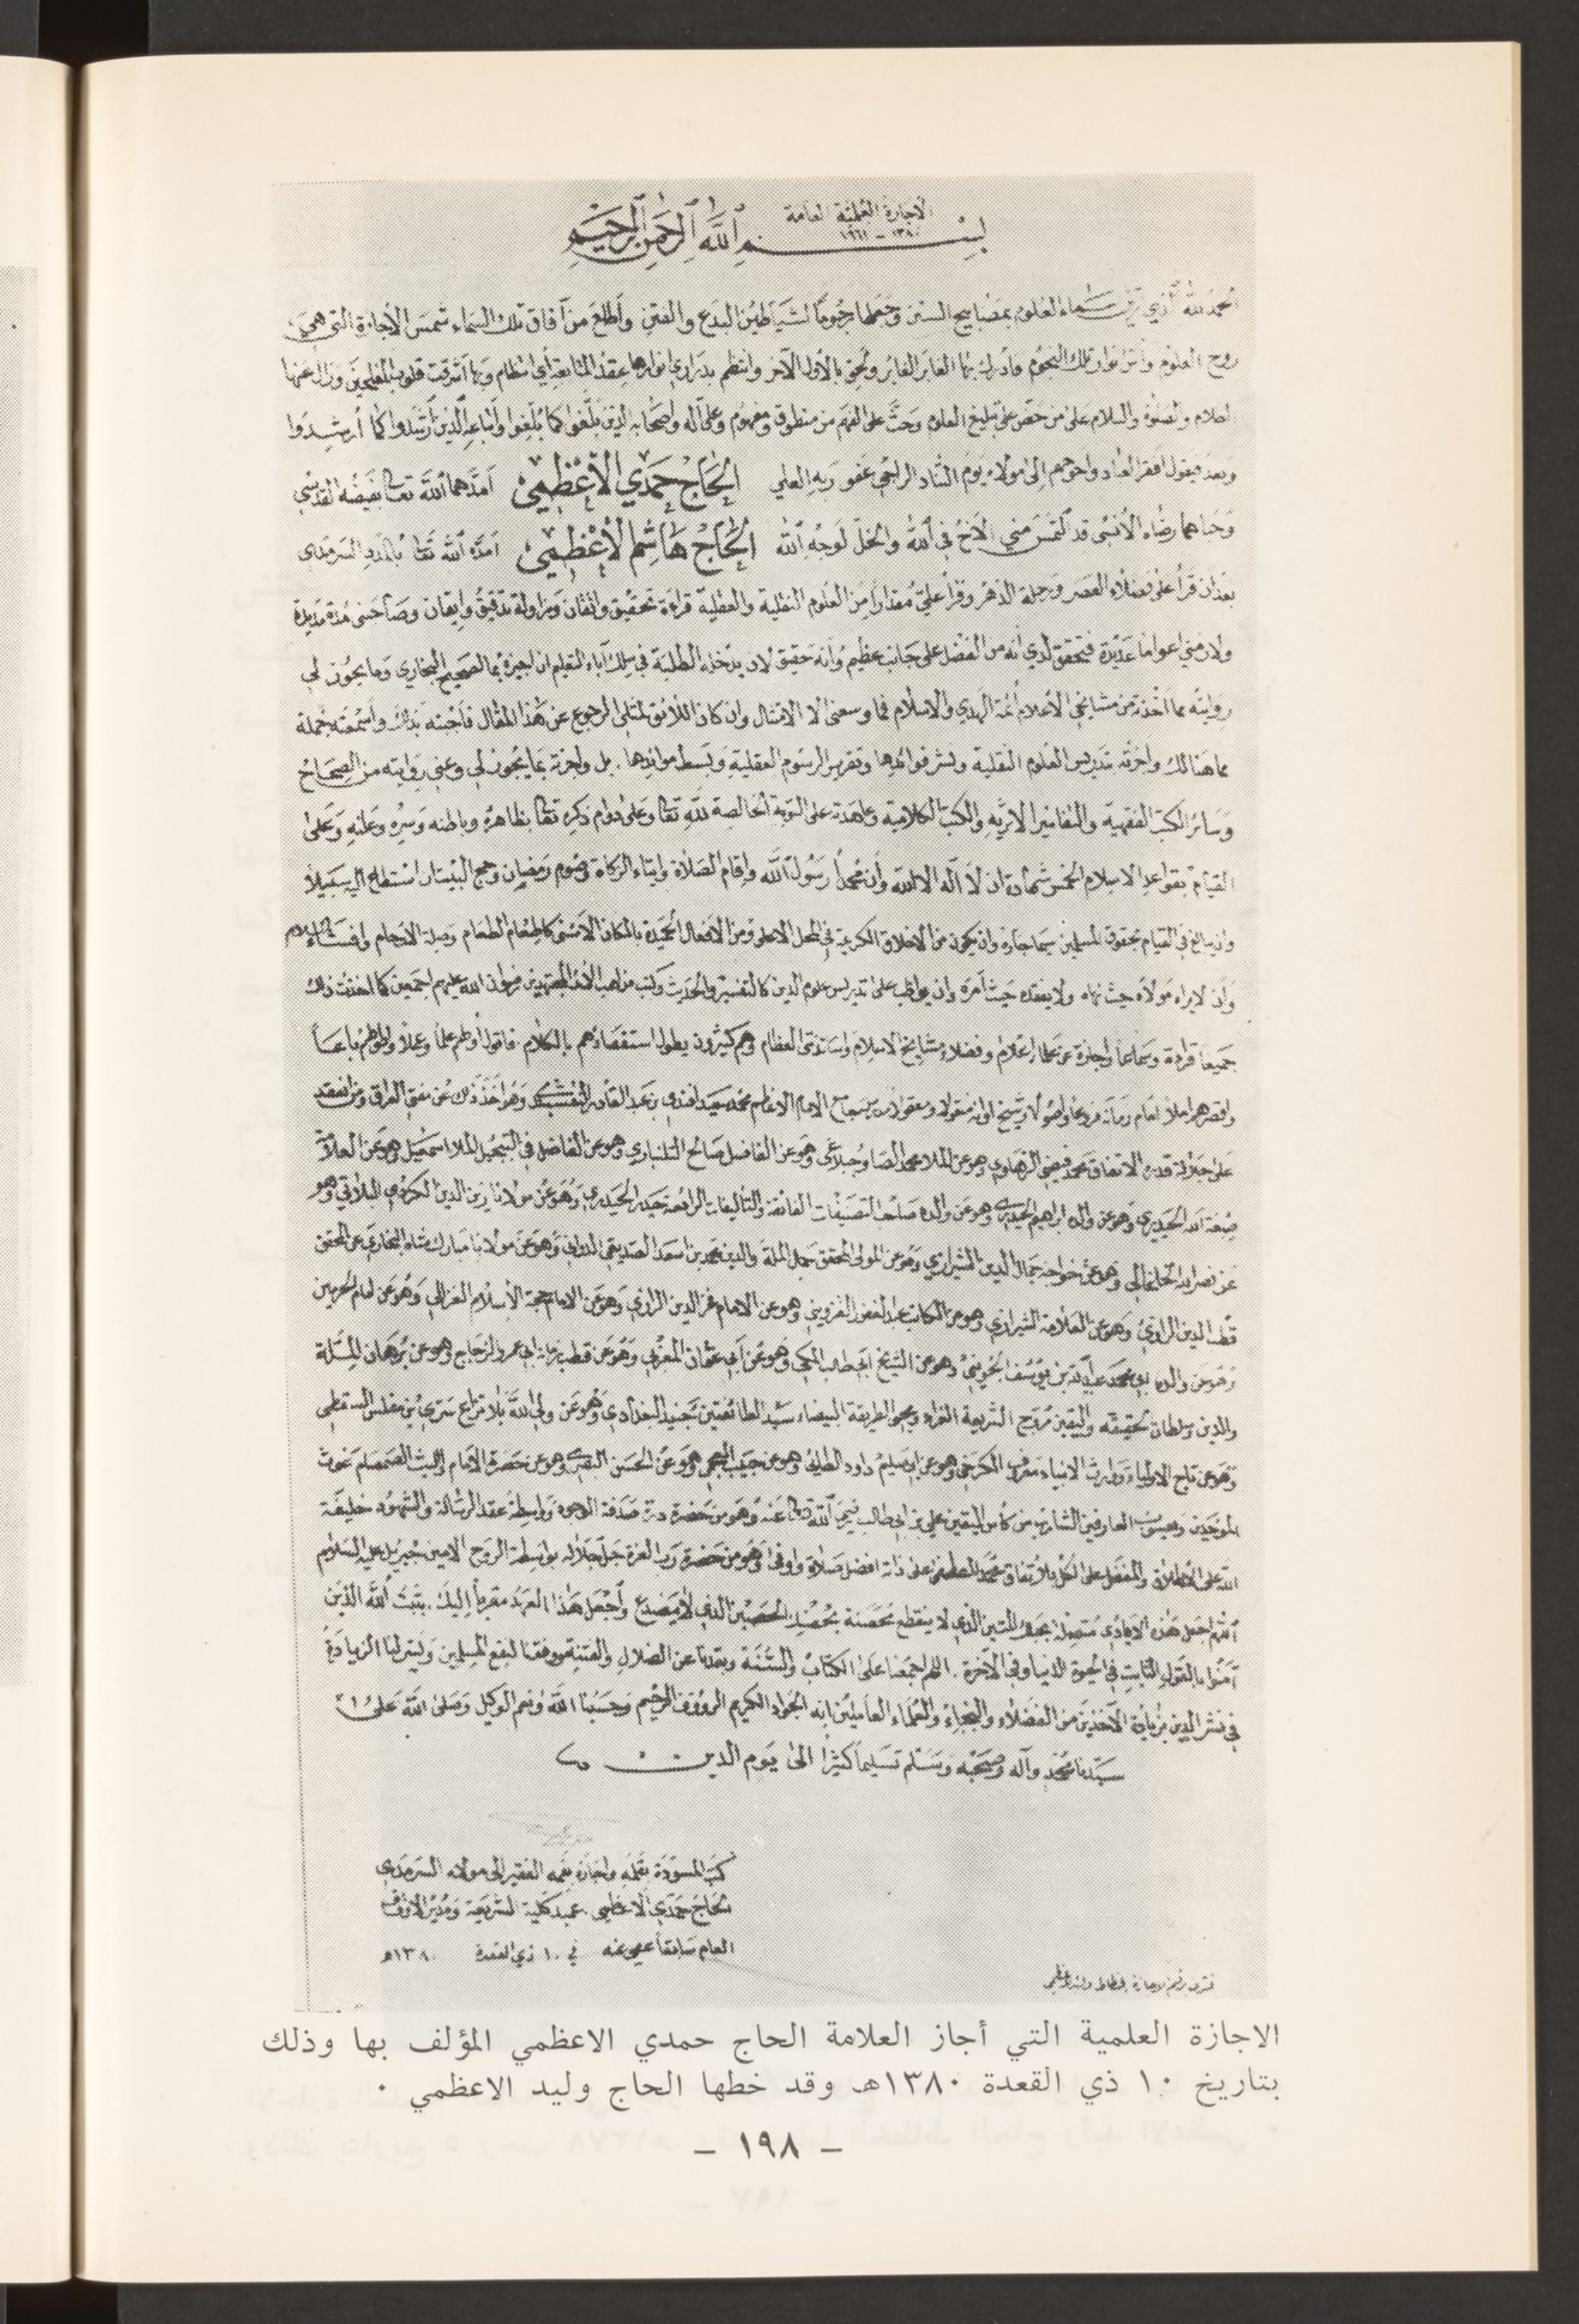 الاجازة العلمية العامة
١٣٨٠ - ١٩٦١
بسم الله الرحمن الرحيم
الحمد لله الذي زين سماء العلوم بمصابيح السنن وجعلها رجوما لشياطين البدع والفتن وأطلع من آفاق تلك السماء شمس الاجازة التي هي
روح العلوم وأنوار تلك النجوم فأدرك بها الغابر الغابر ولحق بالأول الآخر وانتظم بدراري أنوارها عقد المتابعة أي انتظام وبها أشرقت قلوب المعلمين وزال عنها
الظلام والصلوة والسلام على من حض على تبليغ العلوم وحث على الفهم من منطوق ومفهوم وعلى آله وأصحابه الذين بلغوا كما بُلغوا وأتباعه الذين أرشدوا كما أُرشدوا
وبعد فيقول أفقر العباد وأحوجهم إلى مولاه يوم التناد الراجي عفو ربه العلي الحاج حمدي الأعظمي أمدهما الله تعالى بفيضه القدسي
وحباهما رضاه الأنسى قد التمس مني الأخ في الله والخل لوجه الله الحاج هاشم الأعظمي أمده الله تعالى بالمدد السرمدي
بعد ان قرأ على فضلاء العصر وجلة الدهر وقرأ علي مقدارا من العلوم النقلية والعقلية قراءة تحقيق واتقان ومزاولة تدقيق وايقان وصاحبني مدة مديدة
ولازمني أعواما عديدة فتحقق لدي انه من الفضل على جانب عظيم وأنه حقيق لان يدخل الطلبة في سلك آباء التعليم ان اجيزه بما الصحيح البخاري وما يجوز لي
روايته مما أخذته من مشايخي الأعلام أئمة الهدى والاسلام فما وسعني الا الامتثال وان كان اللائق لمثلي الرجوع عن هذا المقال فأجبته بذلك وأسمعته جملة
مما هنالك واجزته بتدريس العلوم النقلية ونشر فوائدها وتقرير الرسوم العقلية وبسط موائدها . بل واجزته بما يجوز لي وعني روايته من الصحاح
وسائر الكتب الفقهية والتفاسير الاثرية والكتب الكلامية وعاهدته على التوبة الخالصة لله تعالى وعلى دوام ذكره تعالى بظاهره وباطنه وسره وعلنه وعلى
القيام بقواعد الاسلام الخمس شهادة ان لا اله الا الله وأن محمدا رسول الله واقام الصلاة وايتاء الزكاة وصوم رمضان وحج البيت ان استطاع اليه سبيلا
وان يبالغ في القيام بحقوق المسلمين سيما جاره وان يكون من الأخلاق الكريمة في المحل الاعلى ومن الافعال الحميدة بالمكان الأسنى كاطعام الطعام وصلة الارحام وافشاء السلام
وأن لا يراه مولاه حيث نهاه ولا يفقده حيث أمره وان يواظب على تدريس علوم الدين كالتفسير والحديث وكتب مذاهب الأئمة المجتهدين رضوان الله عليهم اجمعين كما اخذت ذلك
جميعا قراءة وسماعا واجازة عن علماء اعلام وفضلاء مشايخ الاسلام واساتذتي العظام وهم كثيرون يطول استقصاؤهم بالكلام فأقول أولهم علما وعملا واطولهم باعا
محمد سعيد افندي بن عبد القادر النقشبندي وهو أخذ ذلك عن مفتي العراق ومن انعقد
على جلالة قدره الاتفاق محمد فيضي الزهاوي وهو عن الملا محمد وهو عن الفاضل صالح وهو عن الفاضل الملا اسمعيل وهو عن العلامة
صبغة الله الحيدري وهو عن والده ابراهيم الحيدري وهو عن والده صاحب التصنيفات الفائقة والتأليفات الرائعة حيدر الحيدري وهو عن مولانا زين الدين الكردي البلاتي وهو
عن نصر الله الخلخالي وهو عن خواجه جمال الدين الشيرازي وهو عن المولى المحقق جمال الملة والدين محمد بن اسعد الصديقي الدواني وهو عن مولانا مباركشاه البخاري عن المحقق
قطب الدين الرازي وهو عن العلامة الشيرازي وهو عن الكاتب القزويني وهو عن الامام فخر الدين الرازي وهو عن الامام حجة الأسلام الغزالي وهو عن امام الحرمين
وهو عن والده ابي محمد عبد الله بن يوسف الجويني وهو عن الشيخ ابي طالب المكي وهو عن أبي عثمان المغربي وهو عن قطب زمانه ابي عمرو الزجاج وهو عن برهان الملة
والدين وسلطان تحقيقه واليقين مروج الشريعة الغراء ومحيي الطريقة البيضاء سيد الطائفتين جنيد البغدادي وهو عن ولي الله بلا نزاع سري بن مفلس السقطي
وهو عن تاج الاولياء ووارث الانبياء معروف الكرخي وهو عن ابي سليم داود الطائي وهو عن حبيب العجمي وهو عن الحسن البصري وهو عن حضرة الامام والليث الصمصام غوث
الموحدين ويعسوب العارفين الشارب من كأس اليقين علي بن ابي طالب رضي الله تعالى عنه وهو من حضرة درة صدفة الوجود وواسطة عقد الرسالة والشهود خليفة
الله على الاطلاق والمفضل على الكل بلا تفاق محمد المصطفى على ذاته افضل صلاة واوفى وهو من حضرة رب العزة جل جلاله بواسطة الروح الامين جبريل عليه السلام
اللهم اجعل هذه الأيادي متصلة بحبلك المتين الذي لا ينقطع محصنة بحصنك الحصين الذي لا يتصدع وأجعل هذا العهد مقربا اليك . يثبت الله الذين
آمنوا بالقول الثابت في الحيوة الدنيا وفي الآخرة . اللهم اجمعنا على الكتاب والسنة وبعدنا عن الضلال والفتنة ووفقنا لنفع المسلمين ويسر لنا الزيادة
في نشر الدين بزيادة الآخذين من الفضلاء والنجباء والعلماء العاملين انه الجواد الكريم الرؤوف الرحيم وحسبنا الله ونعم الوكيل وصلى الله على
سيدنا محمد وآله وصحبه وسلم تسليما كثيرا الى يوم الدين
كتب المسودة بقلمه واجازه بفمه الفقير الى مولاه السرمدي
الحاج حمدي الاعظمي . عميد كلية الشريعة ومدير الاوقاف
العام سابقا عفي عنه في ١٠ ذي القعدة ١٣٨٠هـ
الاجازة العلمية التي أجاز العلامة الحاج حمدي الاعظمي المؤلف بها وذلك
بتاريخ ١٠ ذي القعدة ١٣٨٠هـ وقد خطها الحاج وليد الاعظمي ٠
- ١٩٨ -